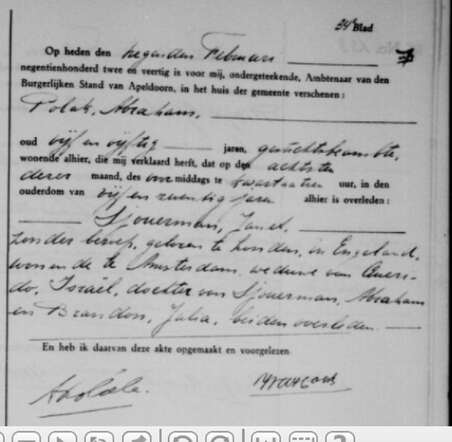 34e Blad
Op heden den negenden Februari
negentienhonderd twee en veertig is voor mij, ondergeteekende, Ambtenaar van den
Burgerlijken Stand van Apeldoorn, in het huis der gemeente verschenen:
Polak, Abraham,
oud vijf en vijftig jaren, gestichtsbeambte,
wonende alhier, die mij verklaard heeft, dat op den achtsten
dezer maand, des voormiddags te kwart uur, in den
ouderdom van vijf en zeventig jaren alhier is overleden:
Sjouerman, Janet,
zonder beroep, geboren te Londen, in Engeland,
wonende te Amsterdam, weduwe van Queri-
do, Israël, dochter van Sjouerman, Abraham
en Brandon, Julia, beiden overleden.
En heb ik daarvan deze akte opgemaakt en voorgelezen